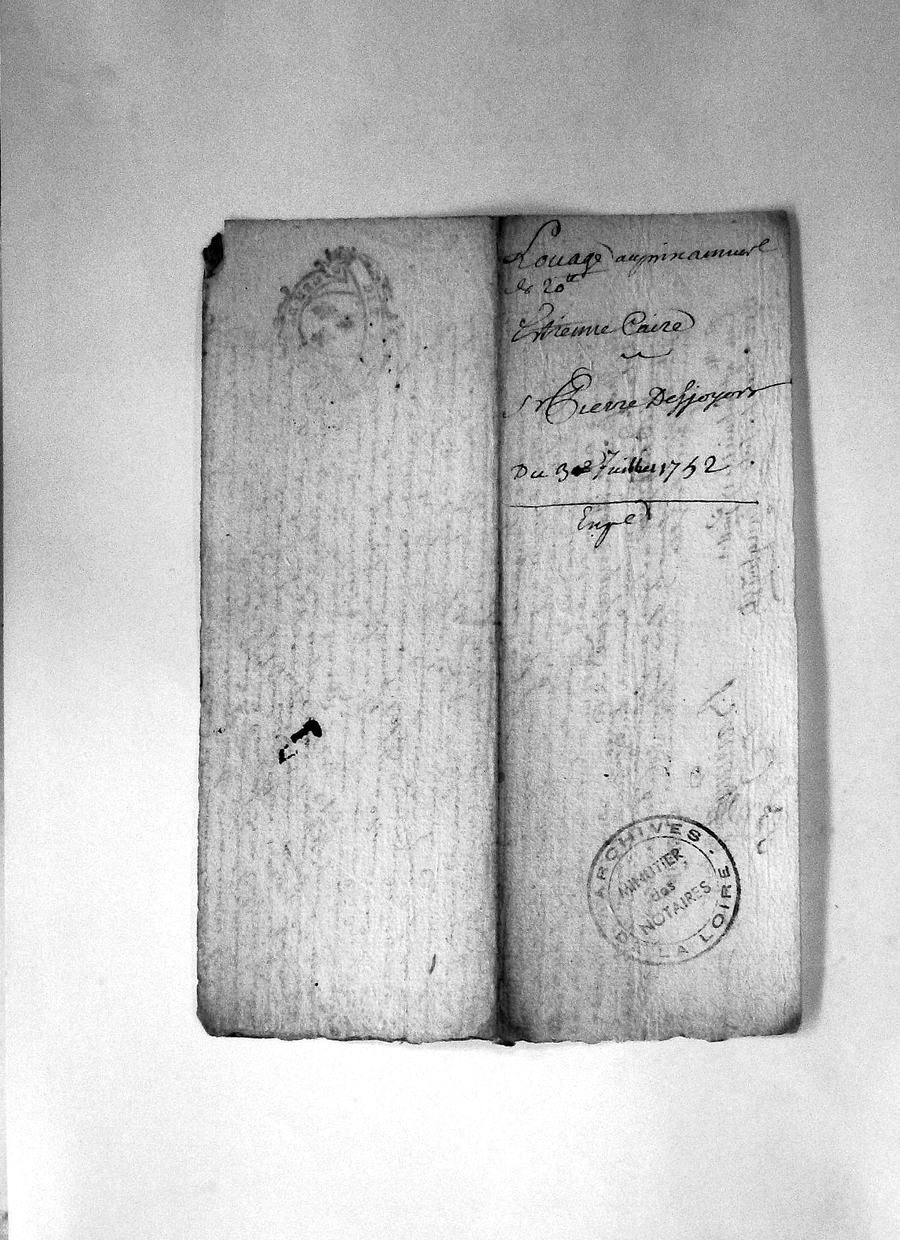 Louage au prix annuel
de 20ᵗᵗ
Estienne Caire
Sr Pierre Desjoyaux
Du 30e Juillet 1752
Expé
ARCHIVES DE LA LOIRE
MINUTIER
des
NOTAIRES